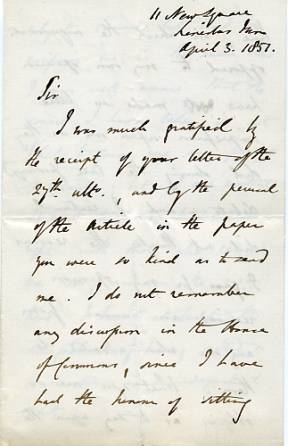 11 New Square
Lincolns Inn
April 3. 1851.
Sir
I was much gratified by
the receipt of your letter of the
27th. ulto., and by the perusal
of the Article in the paper
you were so kind as to send
me. I do not remember
any discussion in the House
of Commons, since I have
had the honour of sitting